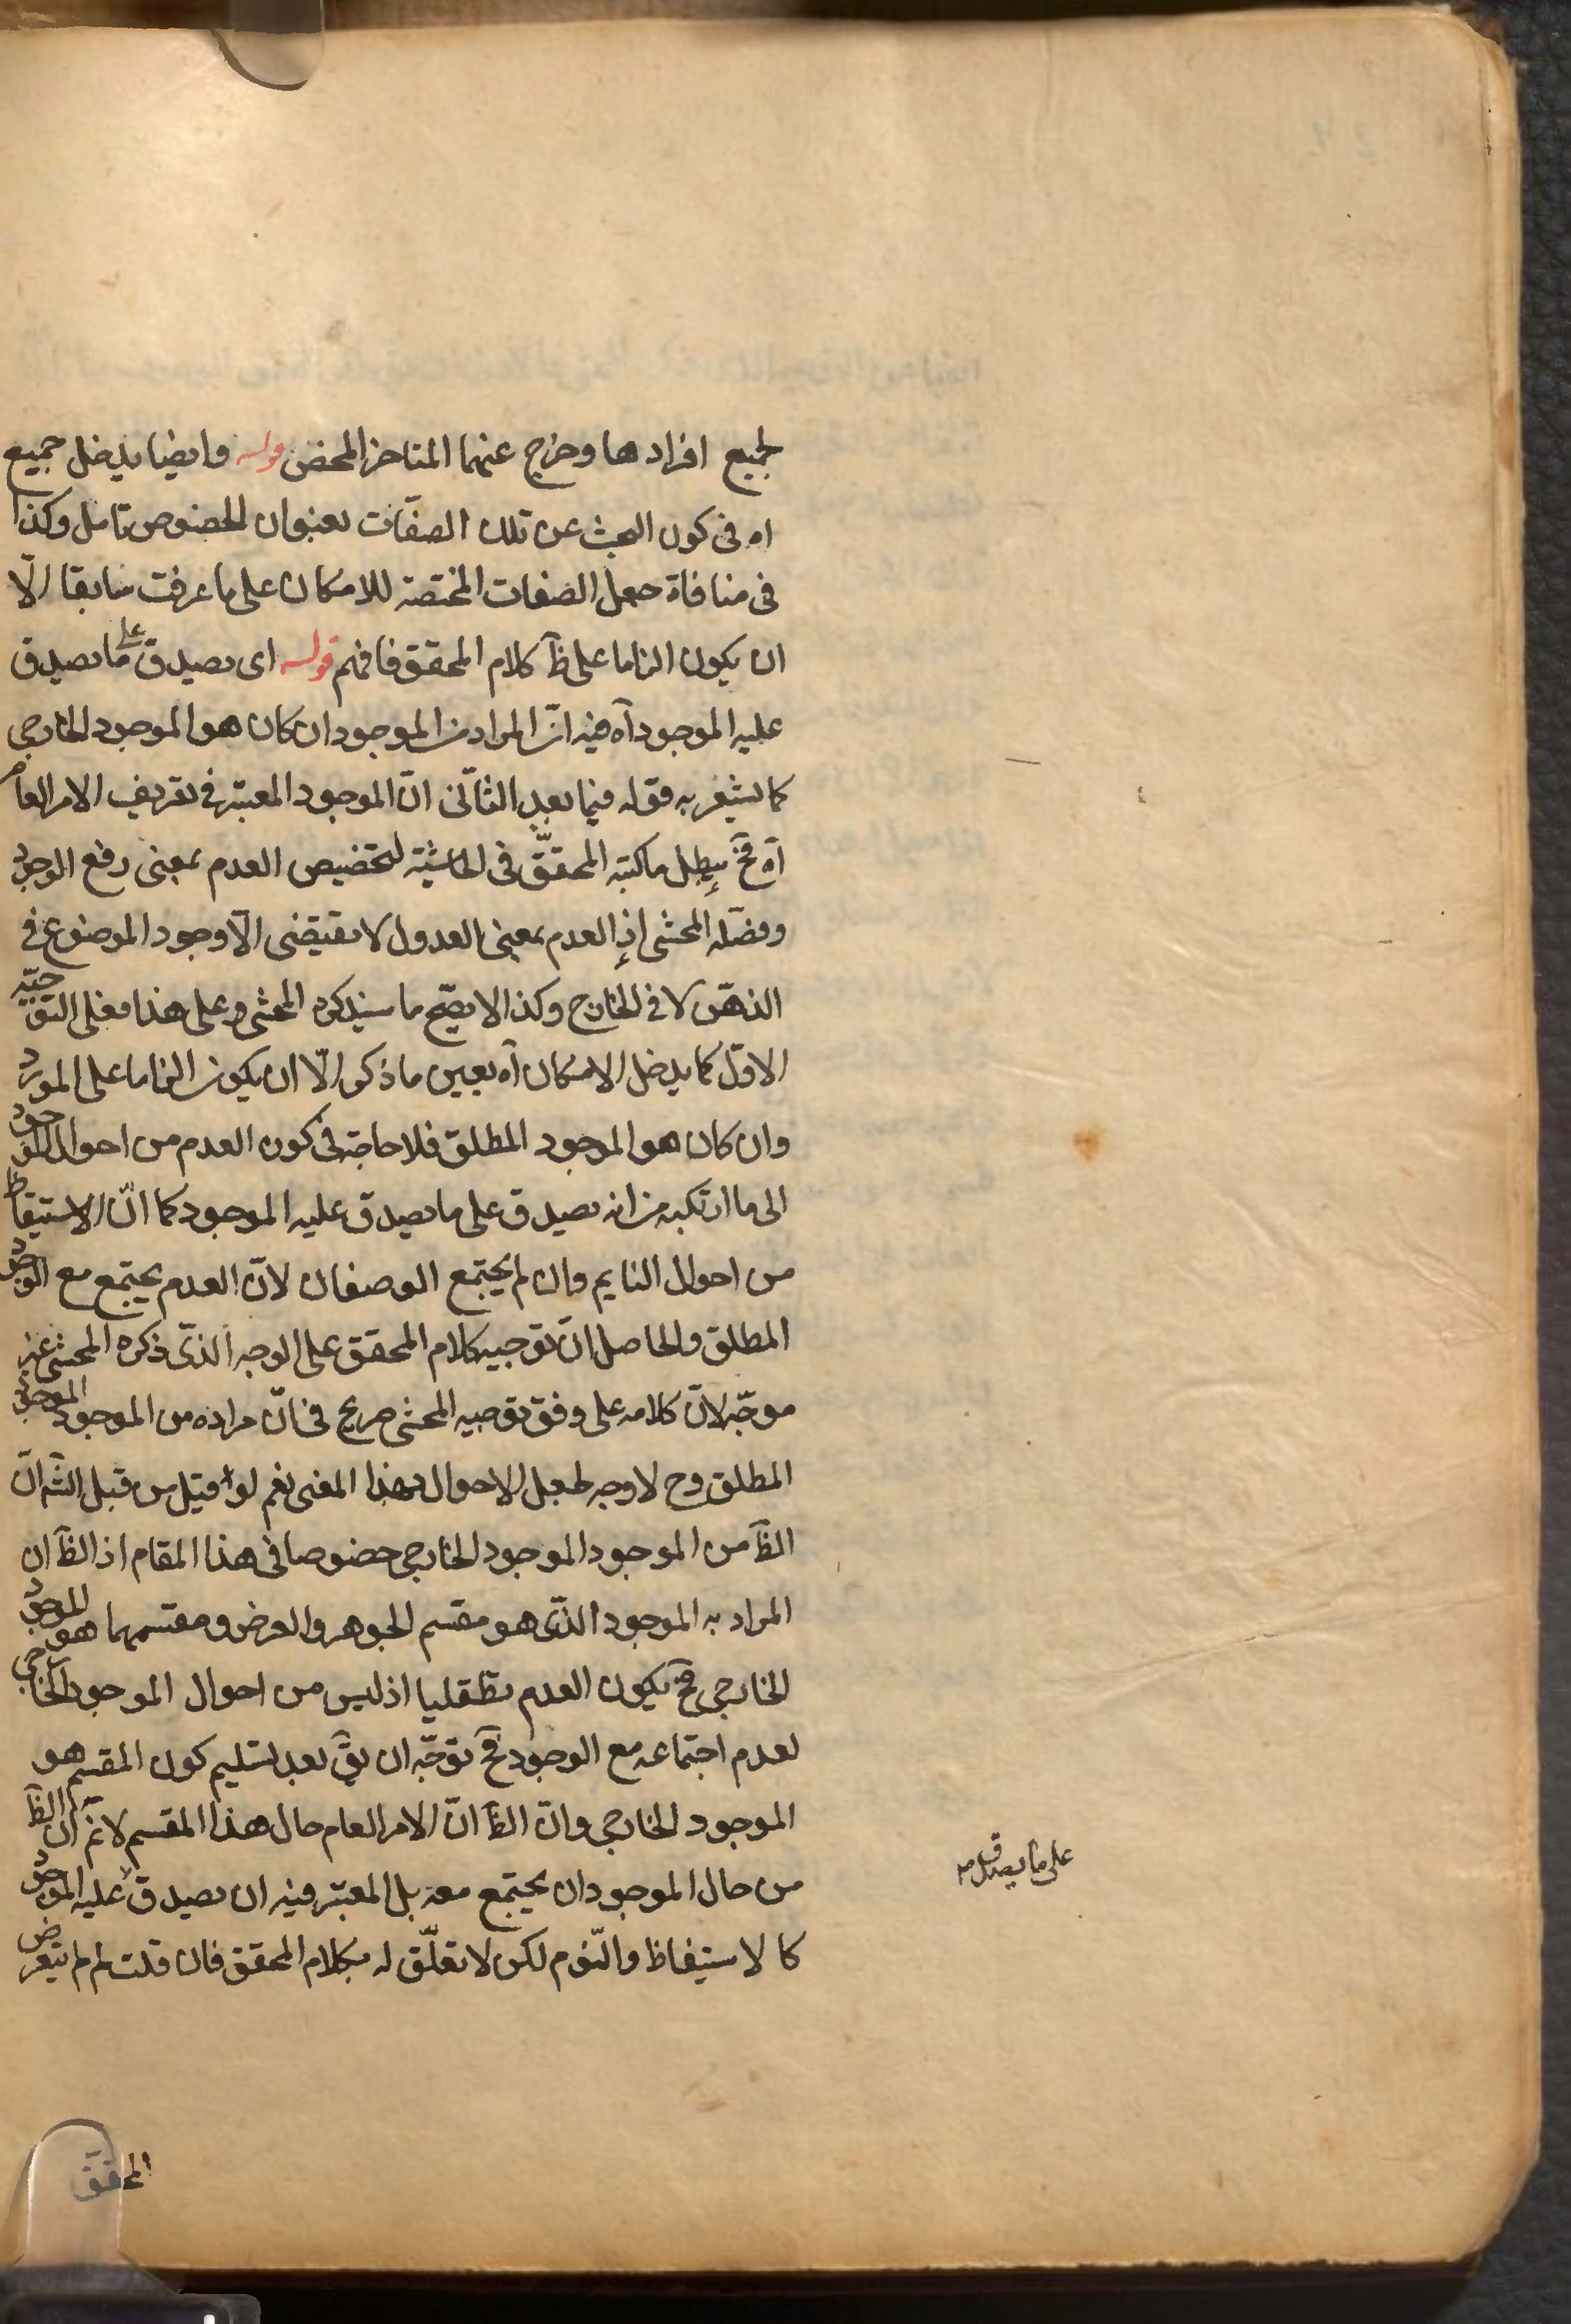 لجميع افرادها وخرج عنهما المتاخر المحض قوله وايضا يدخل جميع
اه فى كون البحث عن تلك الصفات بعنوان الخصوص تامل وكذا
فى منافاة جعل الصفات المختصة للامكان على ما عرفت سابقا الّا
ان يكون الزاما على ظ كلام المحقق فافهم قوله اى يصدق على ما يصدق
عليه الموجود آه فيه انّ المراد من الموجود ان كان هو الموجود الخارجى
كما يشعر به قوله فيما بعد الثانى انّ الموجود المعتبر فى تعريف الامر العام
آه فح يبطل ما كتبه المحقّق فى الحاشية لتخصيص العدم بمعنى رفع الوجود
وفصّله المحشى اذ العدم بمعنى العدول لا يقتضى الّا وجود الموضوع فى
الذهن لا فى الخارج وكذا لا يصحّ ما سيذكره المحشى وعلى هذا فعلى التوجيه
الاوّل كما يدخل الامكان آه بعين ما ذكر الّا ان يكون الزاما على المورد
وان كان هو الموجود المطلق فلا حاجة فى كون العدم من احوال الموجود
الى ما ارتكبه من انه يصدق على ما يصدق عليه الموجود كما انّ الاستيقاظ
من احوال النايم وان لم يجتمع الوصفان لانّ العدم يجتمع مع الوجود
المطلق والحاصل انّ توجيه كلام المحقق على الوجه الذى ذكره المحشى غير
موجّه لانّ كلامه على وفق توجيه المحشى صريح فى انّ مراده من الموجود الموجود
المطلق وح لا وجه لجعل الاحوال بهذا المعنى نعم لو قيل من قبل الشه انّ
الظ من الموجود الموجود الخارجى خصوصا فى هذا المقام اذ الظ ان
المراد به الموجود الذى هو مقسم الجوهر والعرض ومقسمهما هو الموجود
الخارجى فح يكون العدم تطفليا اذ ليس من احوال الموجود الخارجى
لعدم اجتماعه مع الوجود فح توجّه ان يق بعد تسليم كون المقسم هو
الموجود الخارجى وانّ الظ انّ الامر العام حال هذا المقسم لا نم انّ الظ
من حال الموجود ان يجتمع معه بل المعتبر فيه ان يصدق عليه الموجود
كالاستيقاظ والنّوم لكن لا تعلّق له بكلام المحقق فان قلت لم لم يتعرض
على ما يصدق
المحقق